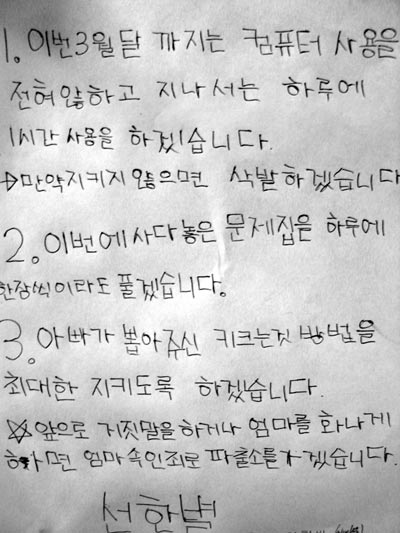 1. 이번3월달 까지는 컴퓨터 사용을
전혀않하고 지나서는 하루에
1시간 사용을 하겠습니다.
→만약지키지 않으면 삭발하겠습니다
2. 이번에사다놓은 문제집을 하루에
한장씩이라도 풀겠습니다.
3. 아빠가 뽑아주신 키크는것 방법을
최대한 지키도록 하겠습니다.
☆앞으로 거짓말을하거나 엄마를 화나게
하면 엄마속인죄로 파출소를가겠습니다.
선한별